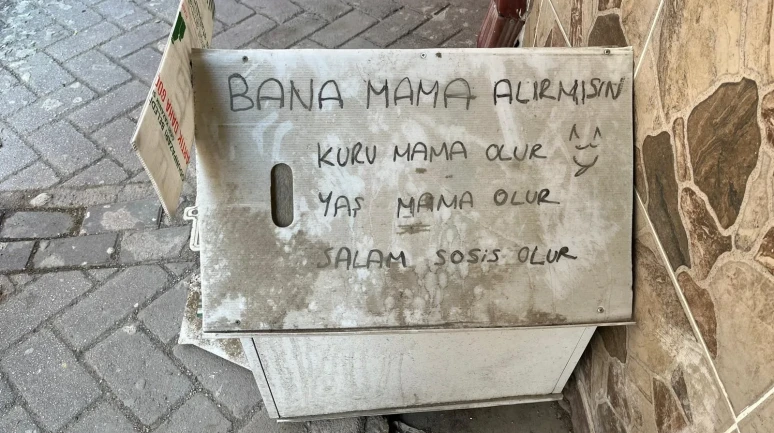 BANA MAMA ALIRMISIN
KURU MAMA OLUR
YAŞ MAMA OLUR
SALAM SOSİS OLUR